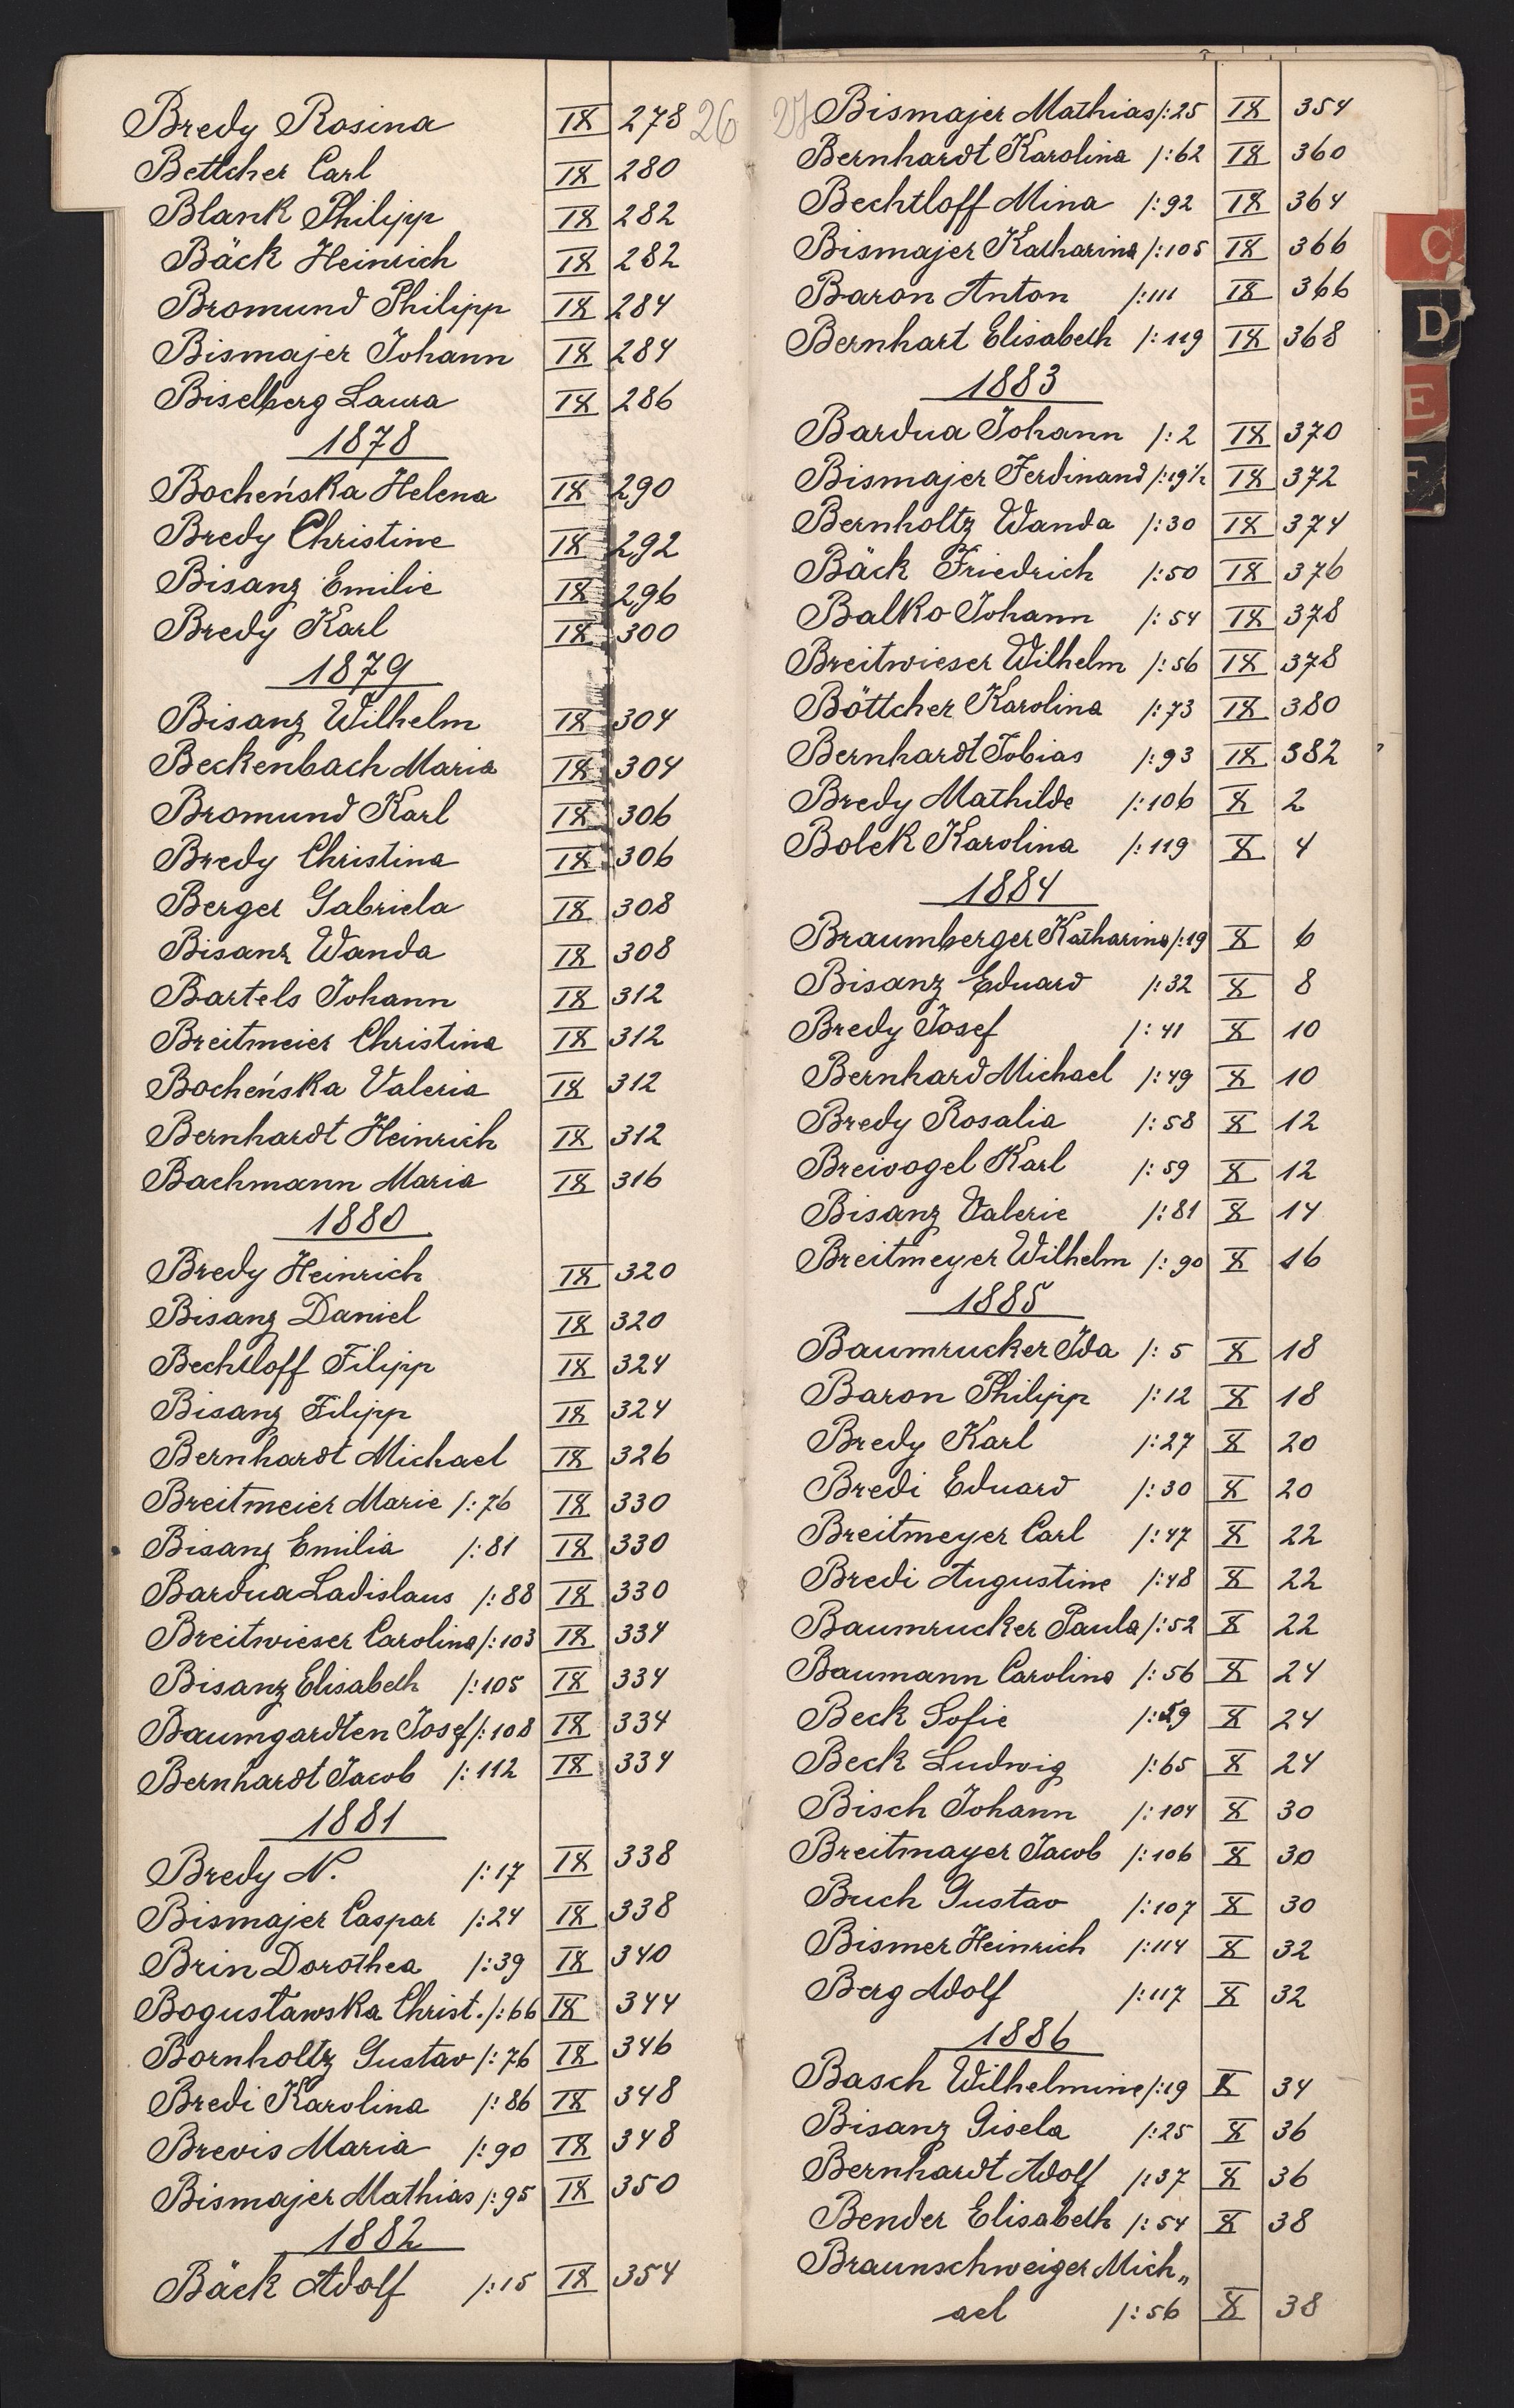 Bredy Rosina IX 278 26
Bettcher Carl IX 280
Blank Philipp IX 282
Bäck Heinrich IX 282
Bromund Philipp IX 284
Bismajer Johann IX 284
Biselberg Laura IX 286
1878
Bocheńska Helena IX 290
Bredy Christine IX 292
Bisanz Emilie IX 296
Bredy Karl IX 300
1879
Bisanz Wilhelm IX 304
Beckenbach Maria IX 304
Bromund Karl IX 306
Bredy Christina IX 306
Berger Gabriela IX 308
Bisanz Wanda IX 308
Bartels Johann IX 312
Breitmeier Christina IX 312
Bocheńska Valeria IX 312
Bernhardt Heinrich IX 312
Bachmann Maria IX 316
1880
Bredy Heinrich IX 320
Bisanz Daniel IX 320
Bechtloff Filipp IX 324
Bisanz Filipp IX 324
Bernhardt Michael IX 326
Breitmeier Marie /: 76 IX 330
Bisanz Emilia /: 81 IX 330
Bardua Ladislaus /: 88 IX 330
Breitwieser Carolina /: 103 IX 334
Bisanz Elisabeth /: 105 IX 334
Baumgardten Josef /: 108 IX 334
Bernhardt Jacob /: 112 IX 334
1881
Bredy N. /: 17 IX 338
Bismajer Caspar /: 24 IX 338
Brin Dorothea /: 39 IX 340
Bogusławska Christ. /: 66 IX 344
Bornholtz Gustav /: 76 IX 346
Bredi Karolina /: 86 IX 348
Brevis Maria /: 90 IX 348
Bismajer Mathias /: 95 IX 350
1882
Bäck Adolf /: 15 IX 354
27 Bismajer Mathias /: 25 IX 354
Bernhardt Karolina /: 62 IX 360
Bechtloff Mina /: 92 IX 364
Bismajer Katharina /: 105 IX 366
Baron Anton /: 111 IX 366
Bernhart Elisabeth /: 119 IX 368
1883
Bardua Johann /: 2 IX 370
Bismajer Ferdinand /: 19½ IX 372
Bernholtz Wanda /: 30 IX 374
Bäck Friedrich /: 50 IX 376
Balko Johann /: 54 IX 378
Breitwieser Wilhelm /: 56 IX 378
Böttcher Karolina /: 73 IX 380
Bernhardt Tobias /: 93 IX 382
Bredy Mathilde /: 106 X 2
Bolek Karolina /: 119 X 4
1884
Braumberger Katharina /: 19 X 6
Bisanz Eduard /: 32 X 8
Bredy Josef /: 41 X 10
Bernhard Michael /: 49 X 10
Bredy Rosalia /: 58 X 12
Breivogel Karl /: 59 X 12
Bisanz Valerie /: 81 X 14
Breitmeyer Wilhelm /: 90 X 16
1885
Baumrucker Ida /: 5 X 18
Baron Philipp /: 12 X 18
Bredy Karl /: 27 X 20
Bredi Eduard /: 30 X 20
Breitmeyer Carl /: 47 X 22
Bredi Augustine /: 48 X 22
Baumrucker Paula /: 52 X 22
Baumann Carolina /: 56 X 24
Beck Sofie /: 59 X 24
Beck Ludwig /: 65 X 24
Bisch Johann /: 104 X 30
Breitmayer Jacob /: 106 X 30
Buch Gustav /: 107 X 30
Bismer Heinrich /: 114 X 32
Berg Adolf /: 117 X 32
1886
Basch Wilhelmine /: 19 X 34
Bisanz Gisela /: 25 X 36
Bernhardt Adolf /: 37 X 36
Bender Elisabeth /: 54 X 38
Braunschweiger Mich„
ael /: 56 X 38
C
D
E
F